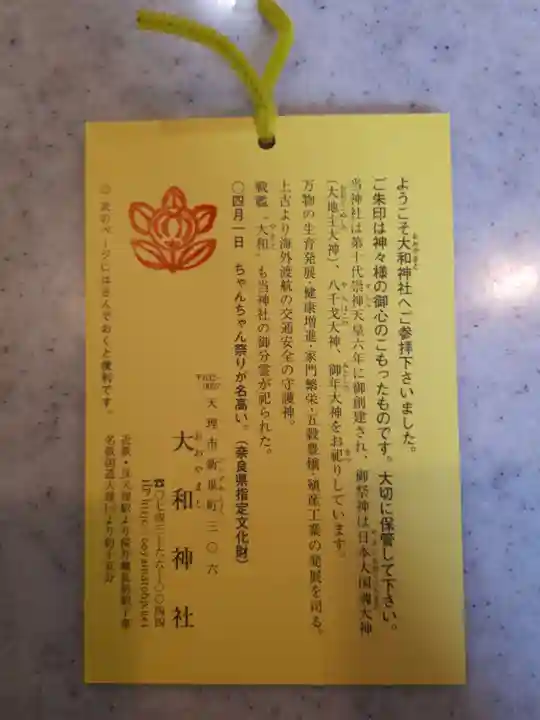 ようこそ大和神社へご参拝下さいました。
ご朱印は神々様の御心のこもったものです。大切に保管して下さい。
当神社は第十代崇神天皇六年に御創建され、御祭神は日本大国魂大神
(大地主大神)、八千戈大神、御年大神をお祀りしています。
万物の生育発展・健康増進・家門繁栄・五穀豊穣・殖産工業の発展を司る。
上古より海外渡航の交通安全の守護神。
戦艦「大和」も当神社の御分霊が祀られた。
〇四月一日 ちゃんちゃん祭りが名高い。(奈良県指定文化財)
天理市新泉町三〇六
大和神社
おおやまと
☎〇七四三-六六-〇〇四四
近鉄・JR天理駅より桜井
名阪国道天理ICより約十五分
〇次のページにはさんでおくと便利です。